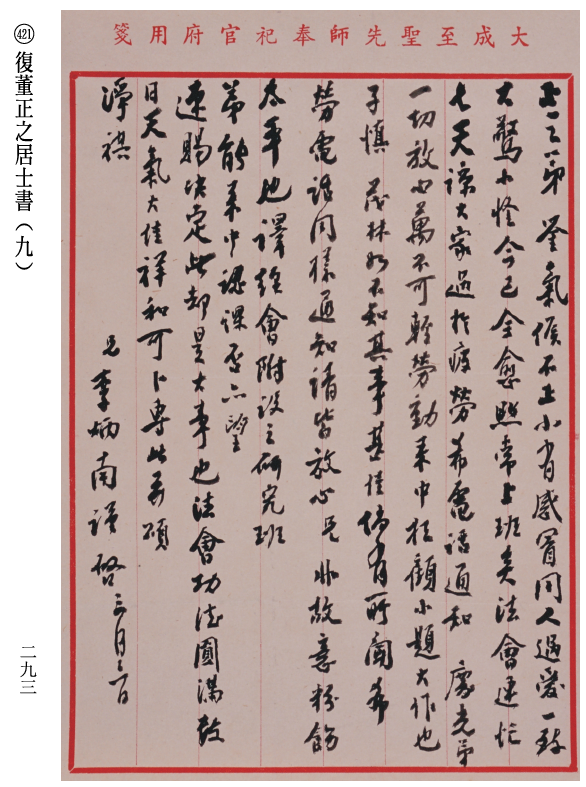 大成至聖先師奉祀官府用箋
正之弟 鑒 氣候不正小有感冒同人過愛一致
大驚小怪今已全愈照常上班矣法會連忙
七天諒大家過於疲勞希電話通知 慶光弟
一切放心萬不可輕勞動來中枉顧小題大作也
子慎 茂林如不知其事甚佳倘有所聞希
勞電話同樣通知請皆放心兄非故意粉飾
太平也譯經會附設之研究班
弟能來中認課否亦望
速賜決定此却是大事也法會功德圓滿數
日天氣大佳祥和可卜專此 頌
淨祺
兄李炳南謹啓 三月 日
421 復董正之居士書（九）
二九三